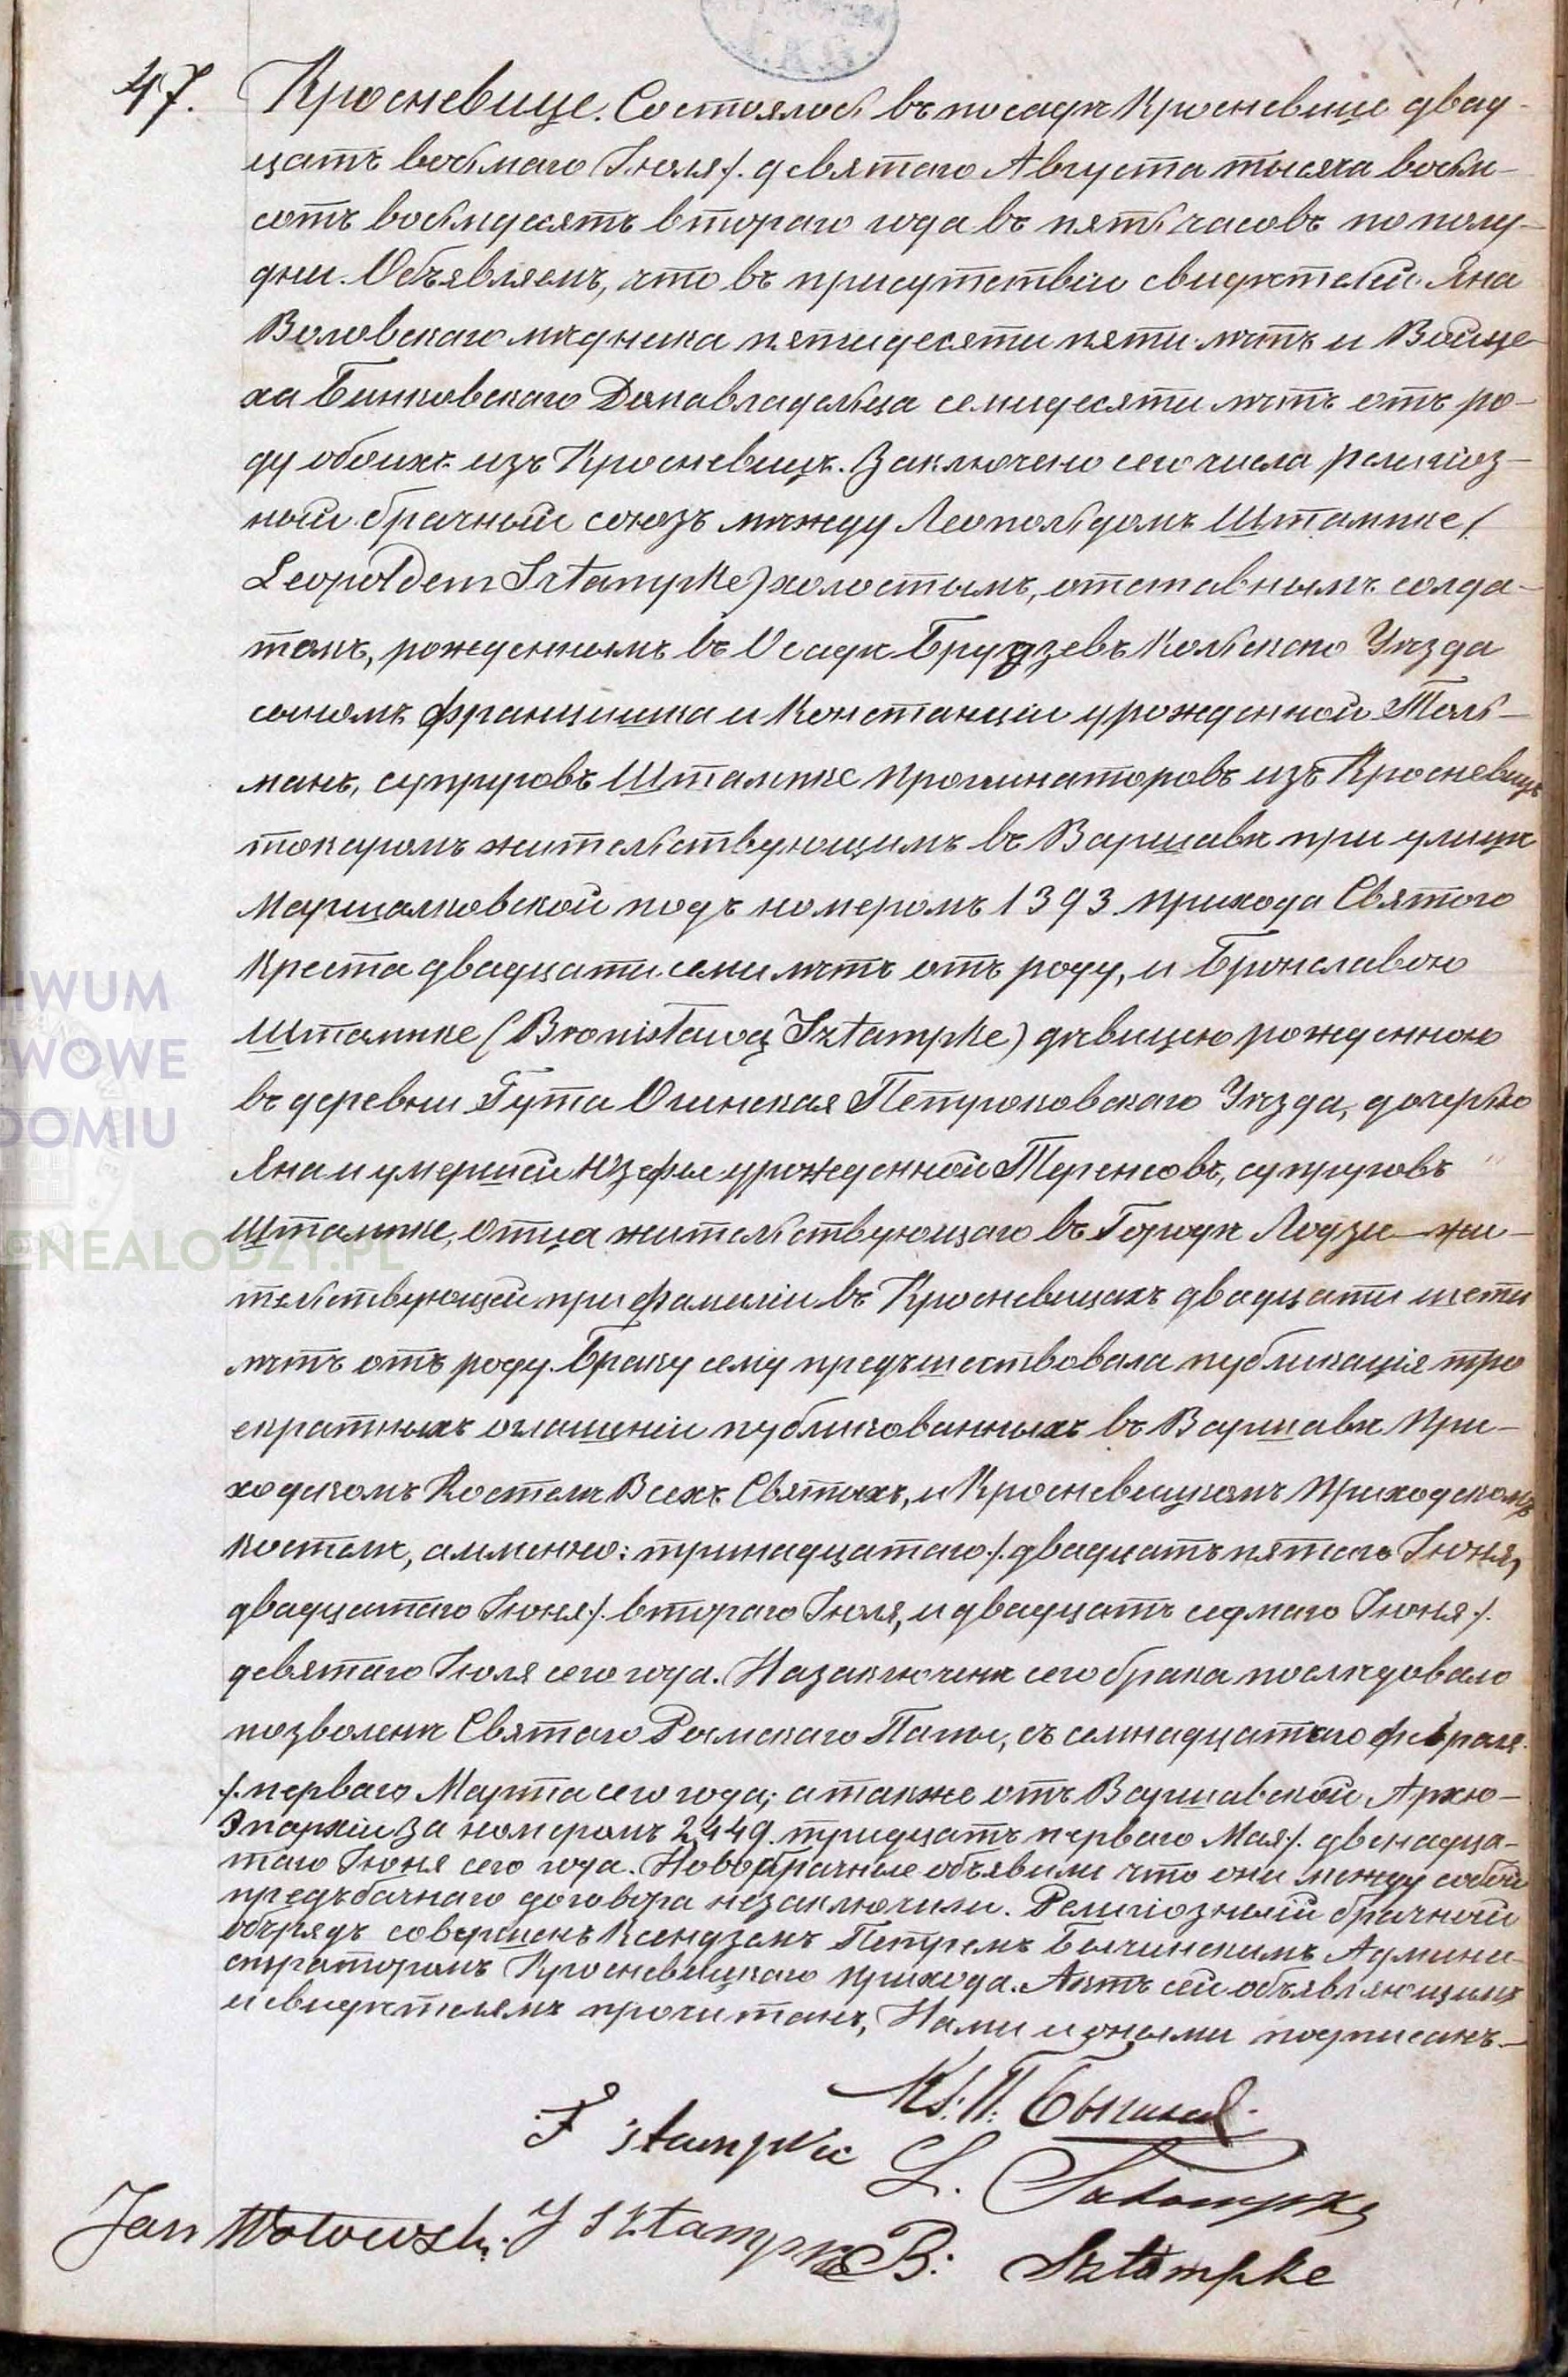 47. Кросневице. Состоялось въ посадѣ Кросневице двад-
цать восьмаго Іюля /. девятаго Августа тысяча восем-
сотъ восемдесятъ втораго года въ пять часовъ по полу-
дни. Объявляемъ, что въ присутствіи свидѣтелей Яна
Воловскаго мѣдника пятидесяти пяти лѣтъ и Войце-
ха Бинковскаго Домавладельца семидесяти лѣтъ отъ ро-
ду обоихъ изъ Кросневицъ. Заключено сего числа религіоз-
ный брачный союзъ между Леопольдомъ Штампке /
Leopoldem Sztampke) холостымъ, отставнымъ солда-
томъ, рожденнымъ въ Осадѣ Брудзевъ Кольскаго Уѣзда
сыномъ Францишка и Констанціи урожденной Толь-
манъ, супруговъ Штампке пропинаторовъ изъ Кросневицъ
токаромъ жительствующимъ въ Варшавѣ при улицѣ
Маршалковской подъ номеромъ 1393 прихода Святого
Креста двадцати семи лѣтъ отъ роду, и Брониславою
Штампке (Bronisławą Sztampke) дѣвицею рожденною
въ деревни Гута Петроковскаго Уѣзда, дочерью
Яна и умершей Юзефы урожденной супруговъ
Штампке, отца жительствующаго въ Городѣ Лодзи жи-
тельствующей при фамиліи въ Кросневицахъ двадцати шести
лѣтъ отъ роду. Браку сему предшествовала публикація тро
екратныхъ оглашеніи публикованныхъ въ Варшавѣ При-
ходскомъ Костелѣ Всехъ Святыхъ, и Кросневицкомъ Приходскомъ
Костелѣ, аименно: тринадцатаго /. двадцать пятаго Іюня,
двадцатаго Іюня /. втораго Іюля, и двадцать седмаго Іюня /.
девятаго Іюля сего года. На заключенѣ сего брака послѣдовало
позволенѣ Святаго Римскаго Папы, съ семнадцатаго февраля
/. перваго Марта сего года; а также отъ Варшавской Архю-
Эпархіи за номеромъ 2449. тридцать перваго Мая /. двенадца-
таго Іюня сего года. Новобрачные объявили что они между собой
предъбачнаго договора незаключили. Религіозный брачный
обрядъ совершенъ Ксендземъ Петремъ Админи-
страторомъ Кросневицкаго прихода. Актъ сей объявляющимъ
и свидѣтелямъ прочитанъ, Нами и оными подписанъ.
Кс: П:
F Stampke
L. Sztampke
Jan Wołowski J Sztampke
B: Sztampke
WUM
WOWE
DOMIU
ENEALODZY.PL